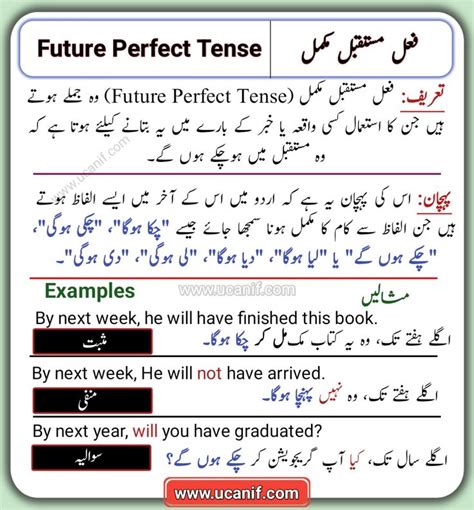 Future Perfect Tense
فعل مستقبل مکمل
تعریف: فعل مستقبل مکمل (Future Perfect Tense) وہ جملے ہوتے
ہیں جن کا استعمال کسی واقعہ یا خبر کے بارے میں یہ بتانے کیلئے ہوتا ہے کہ
وہ مستقبل میں ہوچکے ہوں گے۔
www.ucanif.com
پہچان: اس کی پہچان یہ ہے کہ اردو میں اس کے آخر میں ایسے الفاظ ہوتے
ہیں جن الفاظ سے کام کا مکمل ہونا سمجھا جائے جیسے "چکا ہوگا"، "چکی ہوگی"،
"چکے ہوں گے" یا "لیا ہوگا"، "دیا ہوگا"، "لی ہوگی"، "دی ہوگی"۔
Examples
www.ucanif.com
مثالیں
By next week, he will have finished this book.
مثبت
اگلے ہفتے تک، وہ یہ کتاب مکمل کر چکا ہوگا۔
By next week, He will not have arrived.
منفی
اگلے ہفتے تک، وہ نہیں پہنچا ہوگا۔
By next year, will you have graduated?
سوالیہ
اگلے سال تک، کیا آپ گریجویشن کر چکے ہوں گے؟
www.ucanif.com